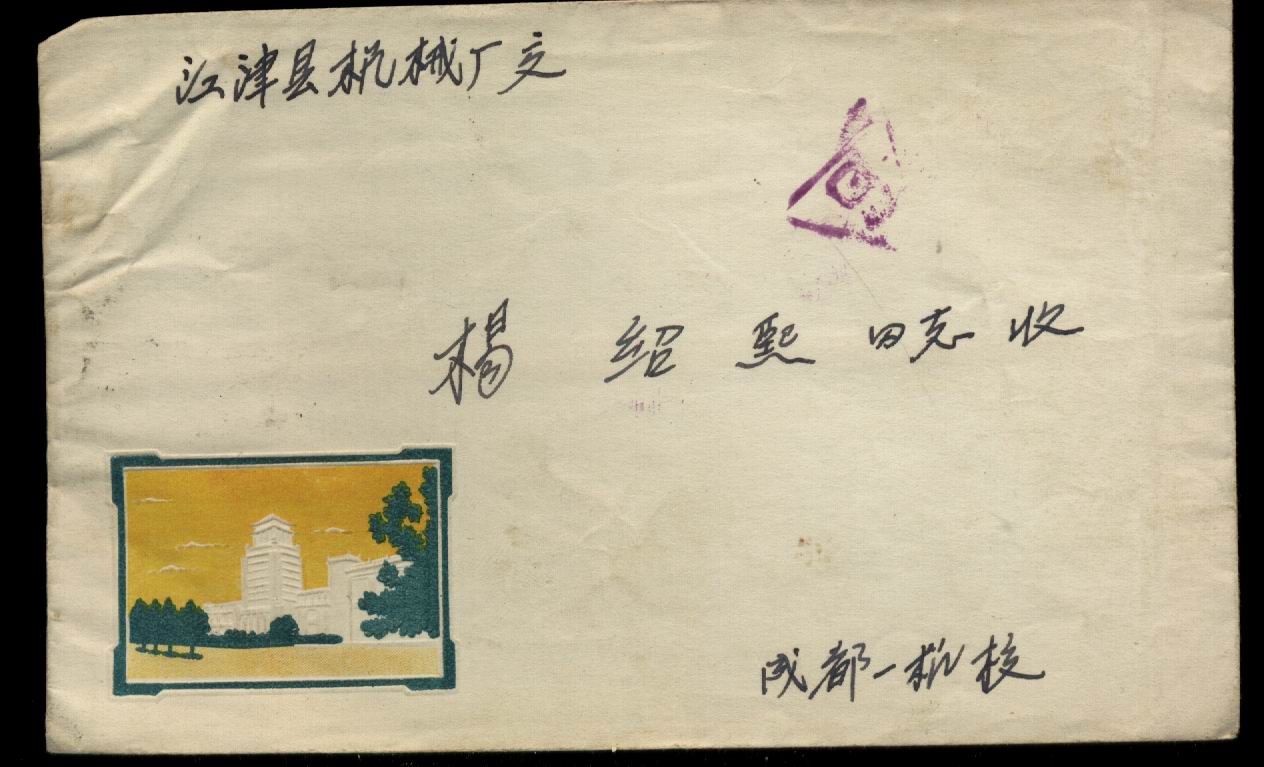 江津县机械厂交
楊 绍 熙 同志 收
成都一机校